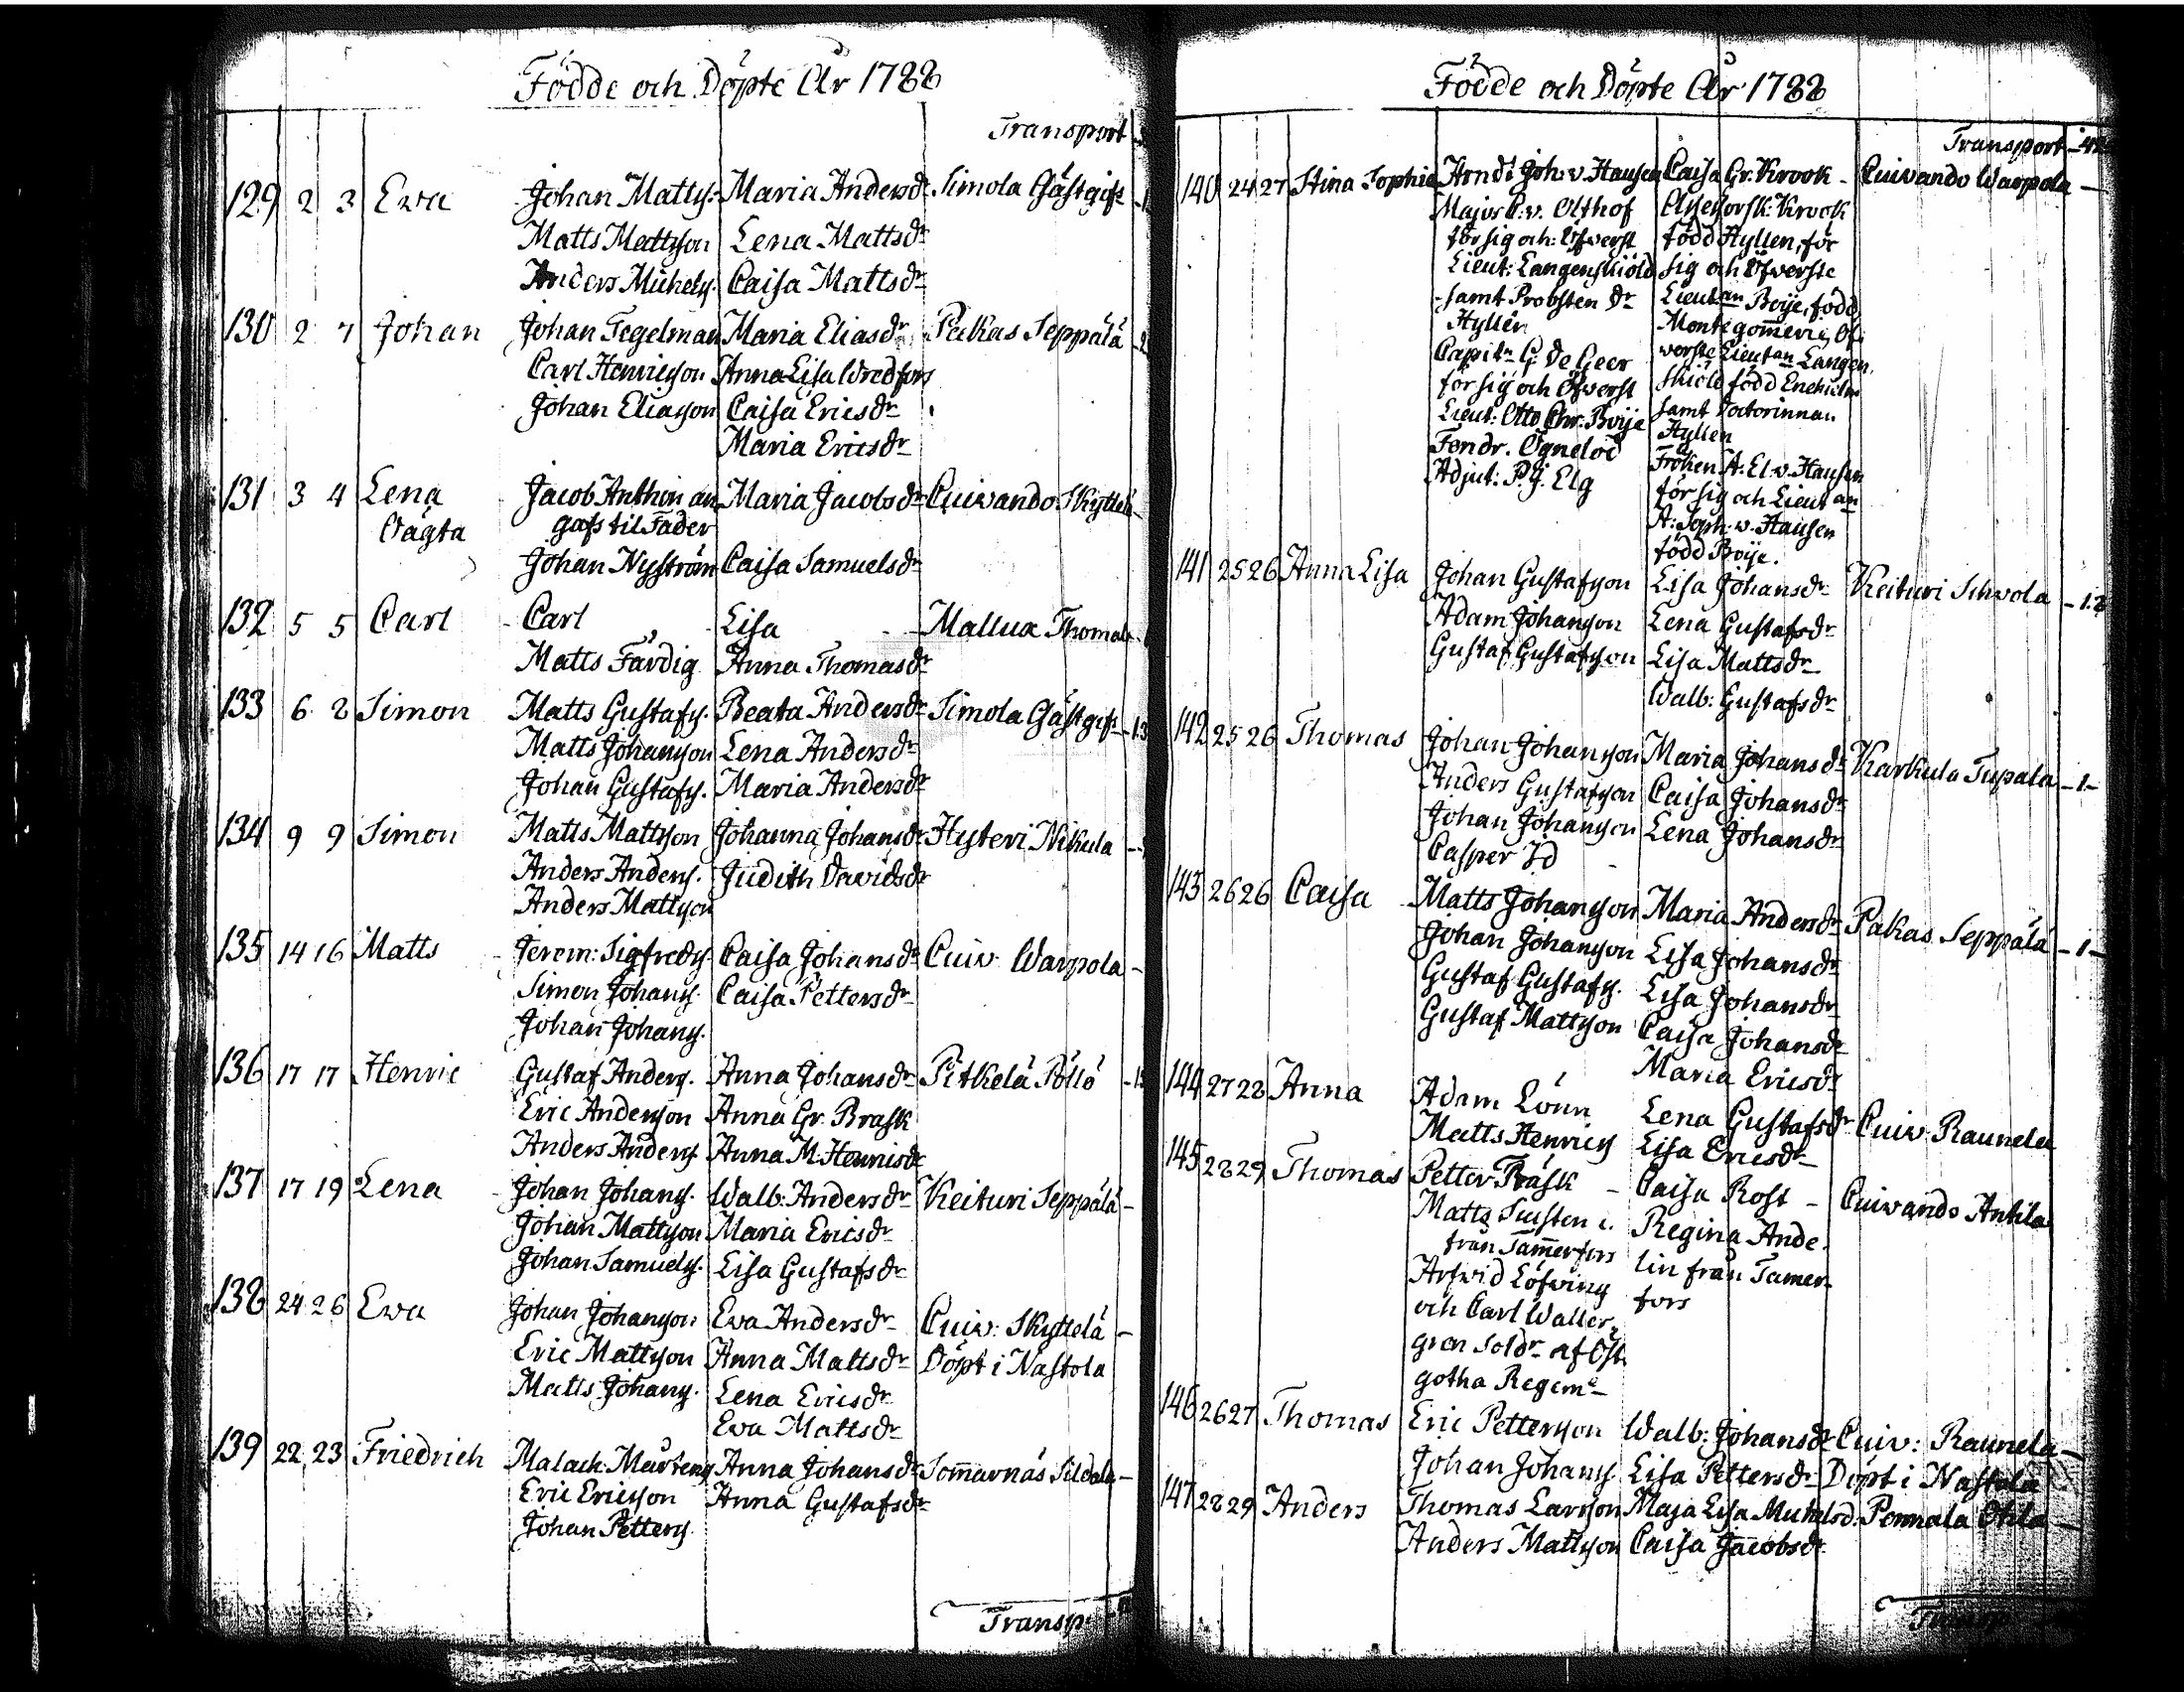 Födde och Döpte År 1788
Transport
129 2 3 Ewa Johan Mattss: Maria Andersdr Simola Gästgifv
Matts Mattsson Lena Mattsdr
Anders Michelss. Caisa Mattsdr
130 2 7 Johan Johan Tegelman Maria Eliasdr Pakas Seppälä
Carl Henricsson Anna Lisa Wredfors
Johan Eliasson Caisa Ericsdr
Maria Ericsdr
131 3 4 Lena Jacob Anthon an Maria Jacobsdr Cuivando Skyttelä
Oägta gafs til Fader
Johan Nyström Caisa Samuelsdr
132 5 5 Carl Carl Lisa Mallua Thomala
Matts Färdig Anna Thomasdr
133 6 8 Simon Matts Gustafss. Beata Andersdr Simola Gästgifv
Matts Johansson Lena Andersdr
Johan Gustafss. Maria Andersdr
134 9 9 Simon Matts Mattsson Johanna Johansdr Hyteri Nikula
Anders Anderss. Judith Davidsdr
Anders Mattsson
135 14 16 Matts Jerem: Sigfredss. Caisa Johansdr Cuiv. Warpola
Simon Johanss. Caisa Pettersdr
Johan Johanss.
136 17 17 Henric Gustaf Anderss. Anna Johansdr Pitkelä Pöllö
Eric Andersson Anna Gr. Brask
Anders Anderss Anna M. Henricsdr
137 17 19 Lena Johan Johanss. Walb: Andersdr Keituri Seppälä
Johan Mattsson Maria Ericsdr
Johan Samuelss. Lisa Gustafsdr
138 24 26 Ewa Johan Johansson Ewa Andersdr Cuiv: Skyttelä
Eric Mattsson Anna Mattsdr Döpt i Nastola
Matts Johanss. Lena Ericsdr
Ewa Mattsdr
139 22 23 Friedrich Malach: Mårtenss Anna Johansdr Som̄arnäs Sildala
Eric Ericsson Anna Gustafsdr
Johan Petterss.
Transp
Födde och Döpte År 1788
Transport
140 24 27 Stina Sophia Arndt Joh. v. Hausen Caisa Gr. Krook Cuivando Warpola
Major C. v. Olthof Assessorsk: Krook
för sig och: Öfverst född Hyllen, för
Lieut: Langenskiöld sig och Öfverste
samt Probsten Dr Lieutan Boije, född
Hyllén Montegom̄eri, Öf-
Capitn G: De Geer verste Lieutan Langen
för sig och Öfverst skiöld född Enehielm
Lieut: Otto Chr. Boije samt Doctorinnan
Fendr. Ögnelod Hyllen
Adjut: P. J. Elg Fröken A. El. v. Hausen
för sig och Lieutan
A: Soph. v. Hausen
född Boije.
141 25 26 Anna Lisa Johan Gustafsson Lisa Johansdr Keituri Schvola
Adam Johansson Lena Gustafsdr
Gustaf Gustafsson Lisa Mattsdr
Walb: Gustafsdr
142 25 26 Thomas Johan Johansson Maria Johansdr Karkula Tupala 1
Anders Gustafsson Caisa Johansdr
Johan Johansson Lena Johansdr
Casper Id
143 26 26 Caisa Matts Johansson Maria Andersdr Pakas Seppälä 1
Johan Johansson Lisa Johansdr
Gustaf Gustafss. Lisa Johansdr
Gustaf Mattsson Caisa Johansdr
Maria Ericsdr
144 27 28 Anna Adam Lönn Lena Gustafsdr Cuiv. Raunela
Matts Henricss Lisa Ericsdr
145 28 29 Thomas Petter Träsk Caisa Rost Cuivando Antila
Matts Regina Ande
från Tam̄erfors lin från Tamer
Arfwid Löfwing fors
och Carl Waller
gren Soldr af Öst
gotha Regemt
146 26 27 Thomas Eric Pettersson Walb: Johansdr Cuiv: Raunela
Johan Johanss Lisa Pettersdr Döpt i Nastola
147 28 29 Anders Thomas Larsson Maja Lisa Michelsd: Pennala Okla
Anders Mattsson Caisa Jacobsdr
Transp